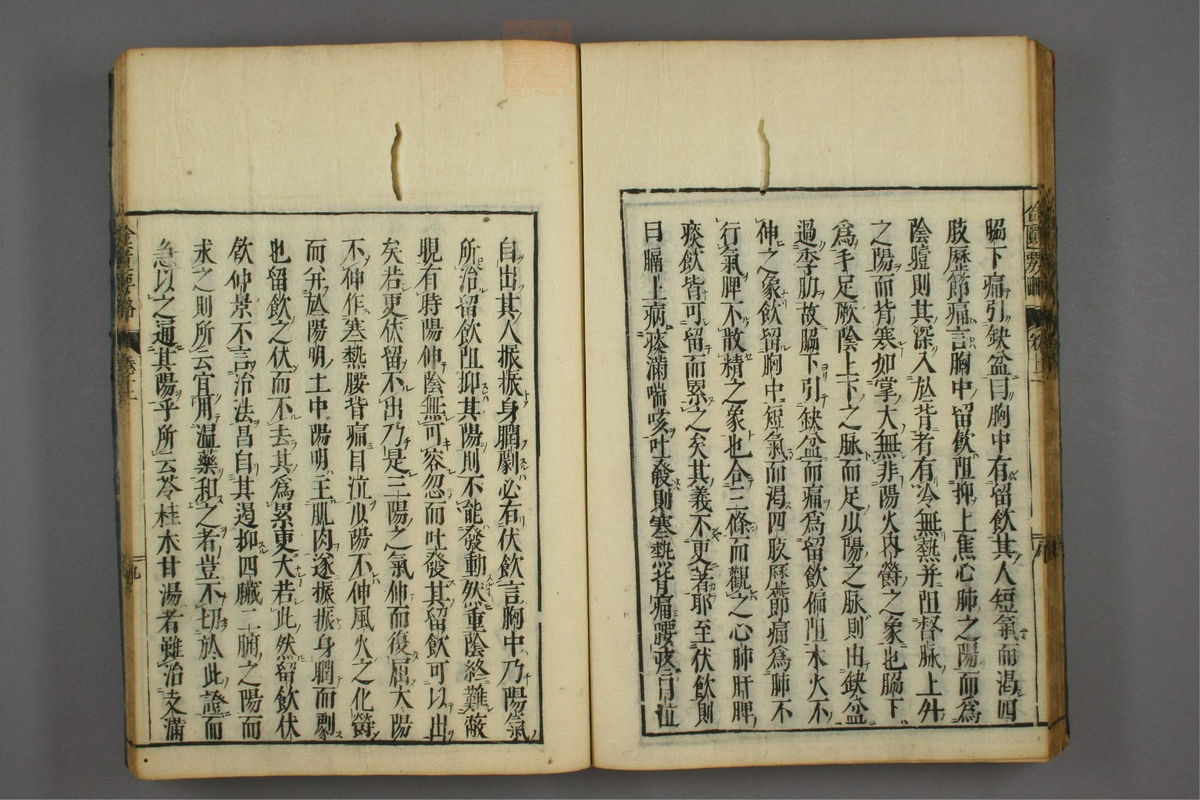 脇下痛引缺盆曰胸中有留飲其人短氣而渴四
肢歷節痛言胸中留飲阻抑上焦心肺之陽而爲
陰曀則其深入於背者有冷無熱并阻督脉上升
之陽而背寒如掌大無非陽火内欝之象也脇下
爲手足厥陰上下之脉而足少陽之脉則出缺盆
過季肋故脇下引缺盆而痛爲留飲偏阻木火不
伸之象飲留胸中短氣而渴四肢歷節痛爲肺不
行氣脾不散精之象也合三條而觀之心肺肝脾
痰飲皆可留而累之矣其義不更著耶至伏飲則
曰膈上病痰滿喘咳吐發則寒熱背痛腰疼目泣
自出其人振振身瞤劇必有伏飲言胸中乃陽氣
所治留飲阻抑其陽則不能發動然重陰終難蔽
晛有時陽伸陰無可容忽而吐發其留飲可以出
矣若更伏留不出乃是三陽之氣伸而復屈太陽
不伸作寒熱腰背痛目泣少陽不伸風火之化欝
而并於陽明土中陽明主肌肉遂振振身瞤而劇
也留飲之伏而不去其爲累更大若此然留飲伏
飲仲景不言治法昌自其遏抑四臟二腑之陽而
求之則所云宜用溫藥和之者豈不切於此證而
急以之通其陽乎所云苓桂木甘湯者雖治支滿
卷十二
九